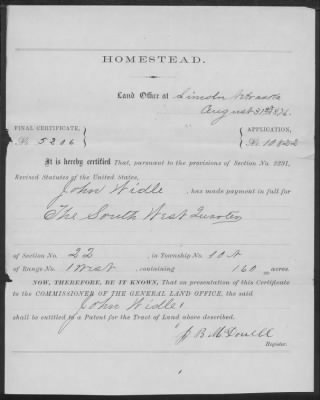 HOMESTEAD.
Land Office at Lincoln Nebraska
August 31st 1876.
FINAL CERTIFICATE, APPLICATION,
No. 5206 No. 10422
It is hereby certified That, pursuant to the provisions of Section No. 2291,
Revised Statutes of the United States,
John Widle, has made payment in full for
The South West Quarter
of Section No. 22, in Township No. 10 N
of Range No. 1 West, containing 160 acres.
NOW, THEREFORE, BE IT KNOWN, That on presentation of this Certificate
to the COMMISSIONER OF THE GENERAL LAND OFFICE, the said
John Widle,
shall be entitled to a Patent for the Tract of Land above described.
J B McDowell
Register.